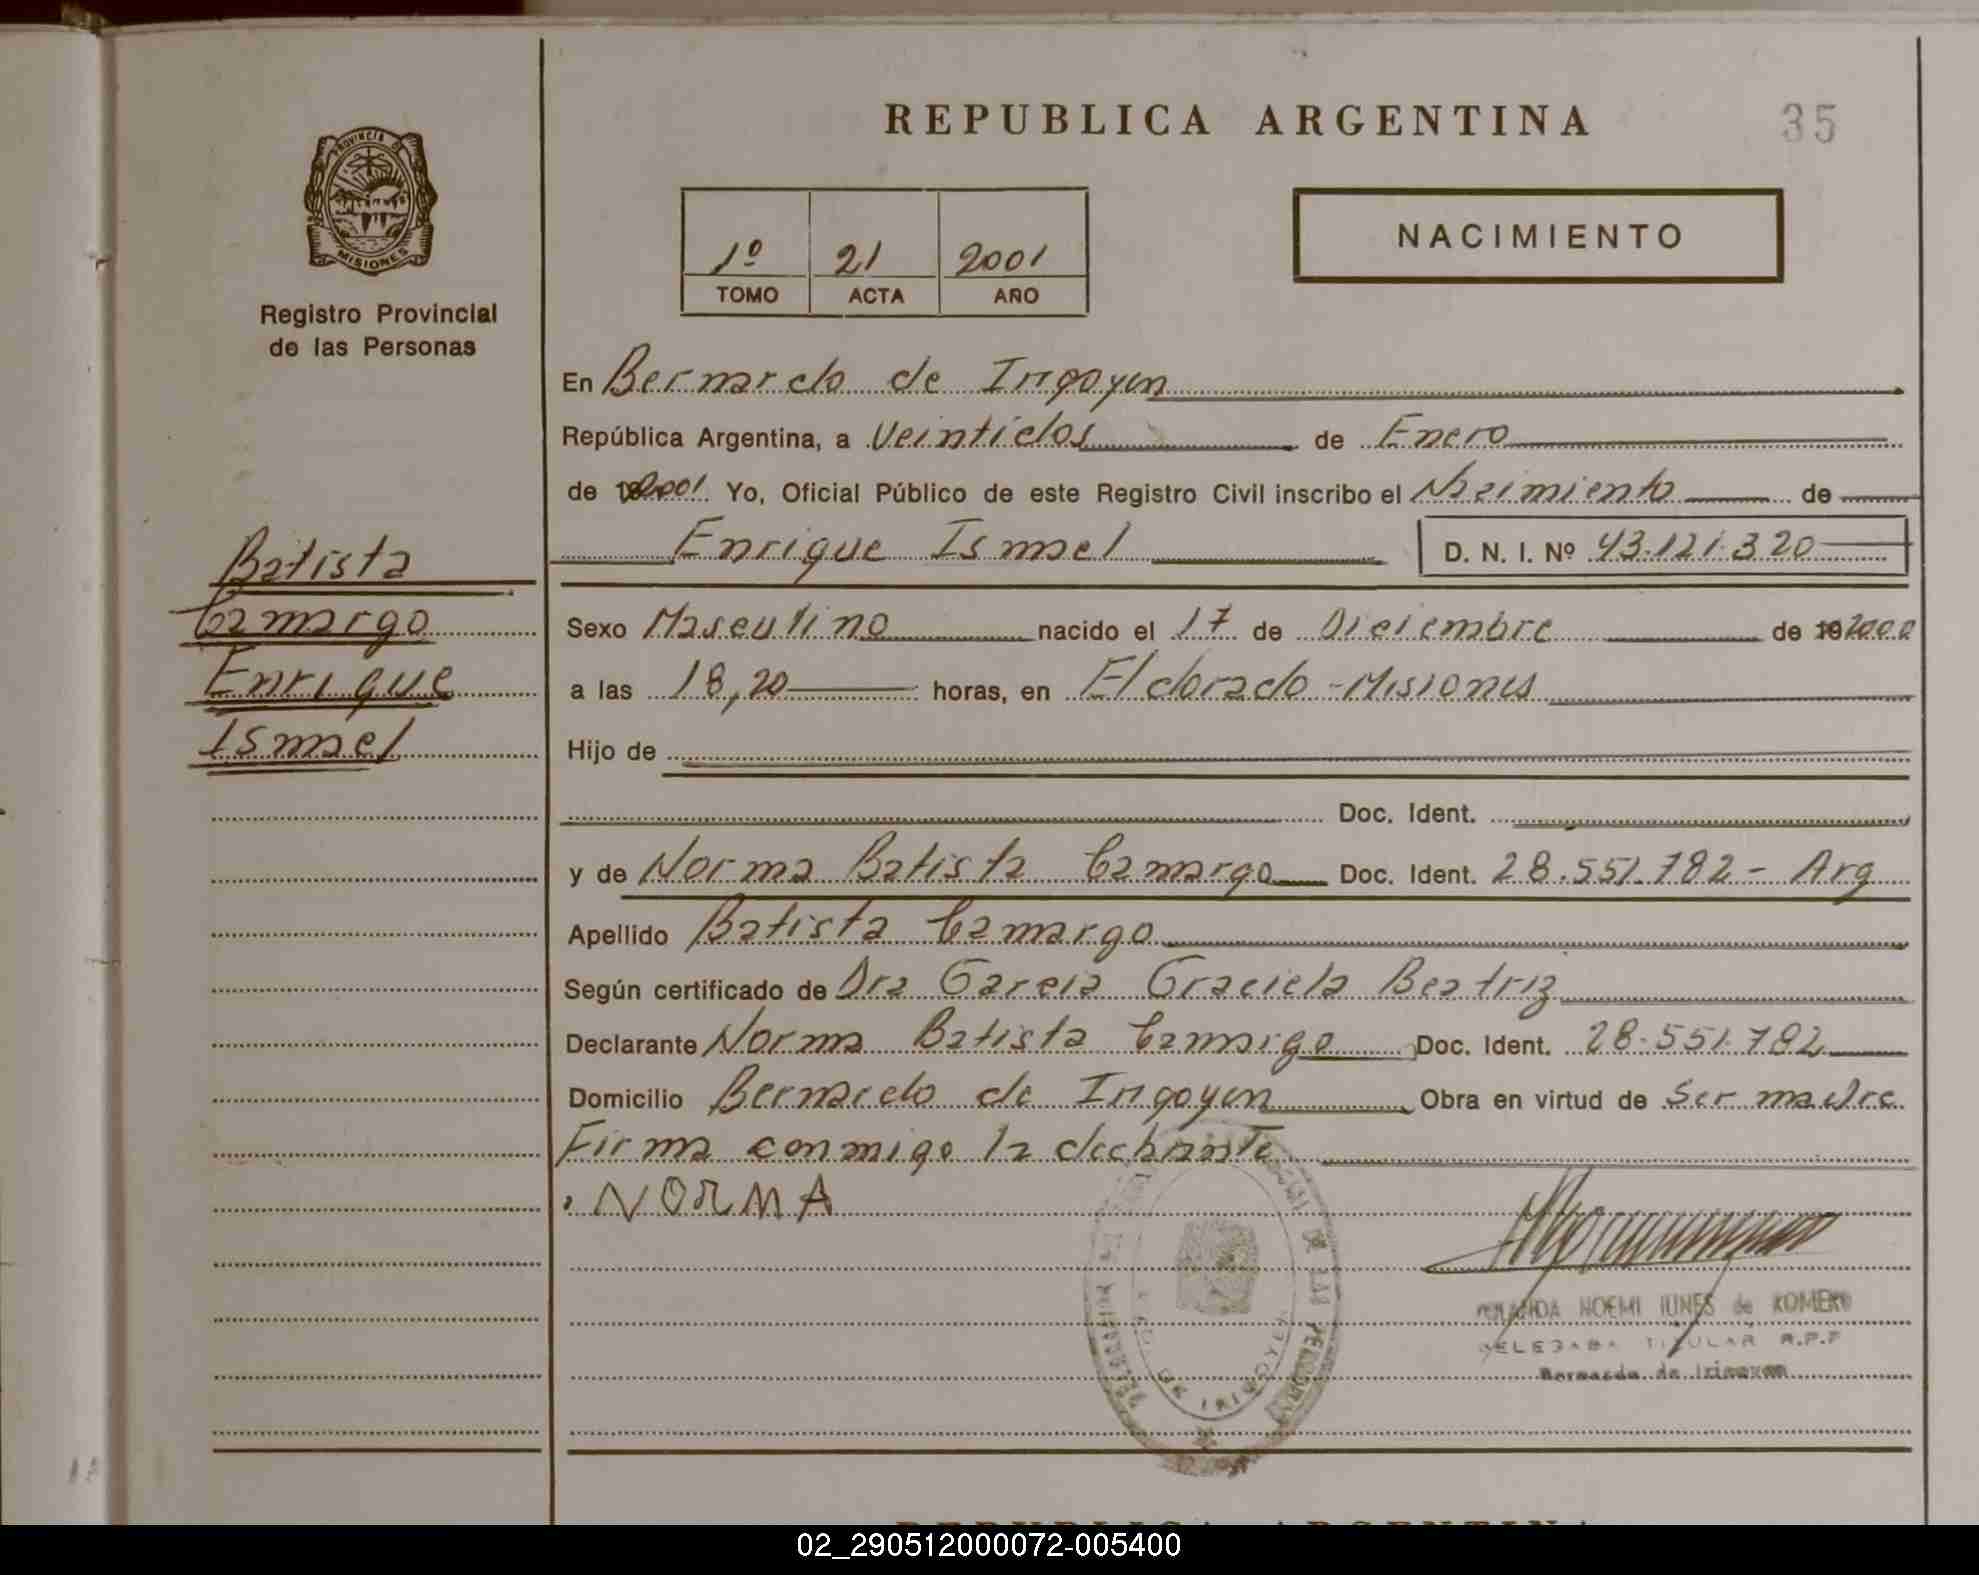 REPUBLICA ARGENTINA
35
PROVINCIA DE
MISIONES
Registro Provincial
de las Personas
1º 21 2001
TOMO ACTA AÑO
NACIMIENTO
En Bernardo de Irigoyen
República Argentina, a Veintidos de Enero
de 2001 Yo, Oficial Público de este Registro Civil inscribo el Nacimiento de
Enrique Ismael D. N. I. Nº 43.121.320
Batista
Camargo
Enrique
Ismael
Sexo Masculino nacido el 17 de Diciembre de 2000
a las 18,20 horas, en Eldorado - Misiones
Hijo de
Doc. Ident.
y de Norma Batista Camargo Doc. Ident. 28.551.782 - Arg
Apellido Batista Camargo
Según certificado de Dra Garcia Graciela Beatriz
Declarante Norma Batista Camargo Doc. Ident. 28.551.782
Domicilio Bernardo de Irigoyen Obra en virtud de Ser madre
Firma conmigo la declarante
NORMA
NOEMI IUNES de ROMERO
DELEGADA TITULAR R.P.P
Bernardo de Irigoyen
REPUBLICA ARGENTINA
02_290512000072-005400